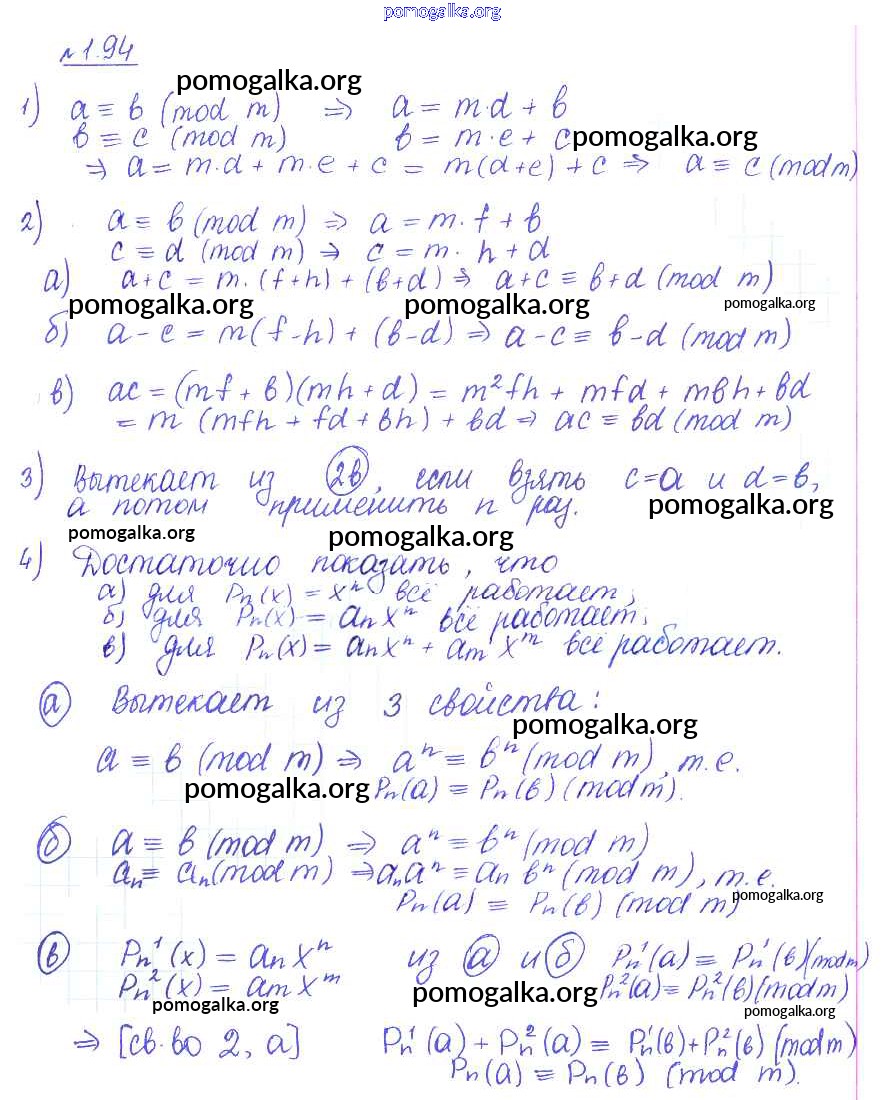 pomogalka.org
№1.94
pomogalka.org
1) a ≡ b (mod m) ⇒ a = m·d + b
b ≡ c (mod m) b = m·e + c pomogalka.org
⇒ a = m·d + m·e + c = m(d+e) + c ⇒ a ≡ c (mod m)
2) a ≡ b (mod m) ⇒ a = m·f + b
c ≡ d (mod m) ⇒ c = m·h + d
а) a+c = m·(f+h) + (b+d) ⇒ a+c ≡ b+d (mod m)
pomogalka.org pomogalka.org pomogalka.org
б) a-c = m(f-h) + (b-d) ⇒ a-c ≡ b-d (mod m)
в) ac = (mf + b)(mh + d) = m²fh + mfd + mbh + bd
= m (mfh + fd + bh) + bd ⇒ ac ≡ bd (mod m)
3) Вытекает из 2в, если взять c=a и d=b,
а потом применить n раз. pomogalka.org
pomogalka.org pomogalka.org
4) Достаточно показать, что
а) для Pn(x) = xⁿ всё работает;
б) для Pn(x) = anxⁿ всё работает;
в) для Pn(x) = anxⁿ + amx^m всё работает.
а Вытекает из 3 свойства:
pomogalka.org
a ≡ b (mod m) ⇒ aⁿ ≡ bⁿ (mod m), т.е.
pomogalka.org Pn(a) ≡ Pn(b) (mod m).
б a ≡ b (mod m) ⇒ aⁿ ≡ bⁿ (mod m)
an ≡ an (mod m) ⇒ anaⁿ ≡ an bⁿ (mod m), т.е.
Pn(a) ≡ Pn(b) (mod m) pomogalka.org
в Pn¹(x) = anxⁿ из а и б Pn¹(a) ≡ Pn¹(b) (mod m)
Pn²(x) = amx^m Pn²(a) ≡ Pn²(b) (mod m)
pomogalka.org pomogalka.org pomogalka.org
⇒ [св-во 2, а] Pn¹(a) + Pn²(a) ≡ Pn¹(b) + Pn²(b) (mod m)
Pn(a) ≡ Pn(b) (mod m).